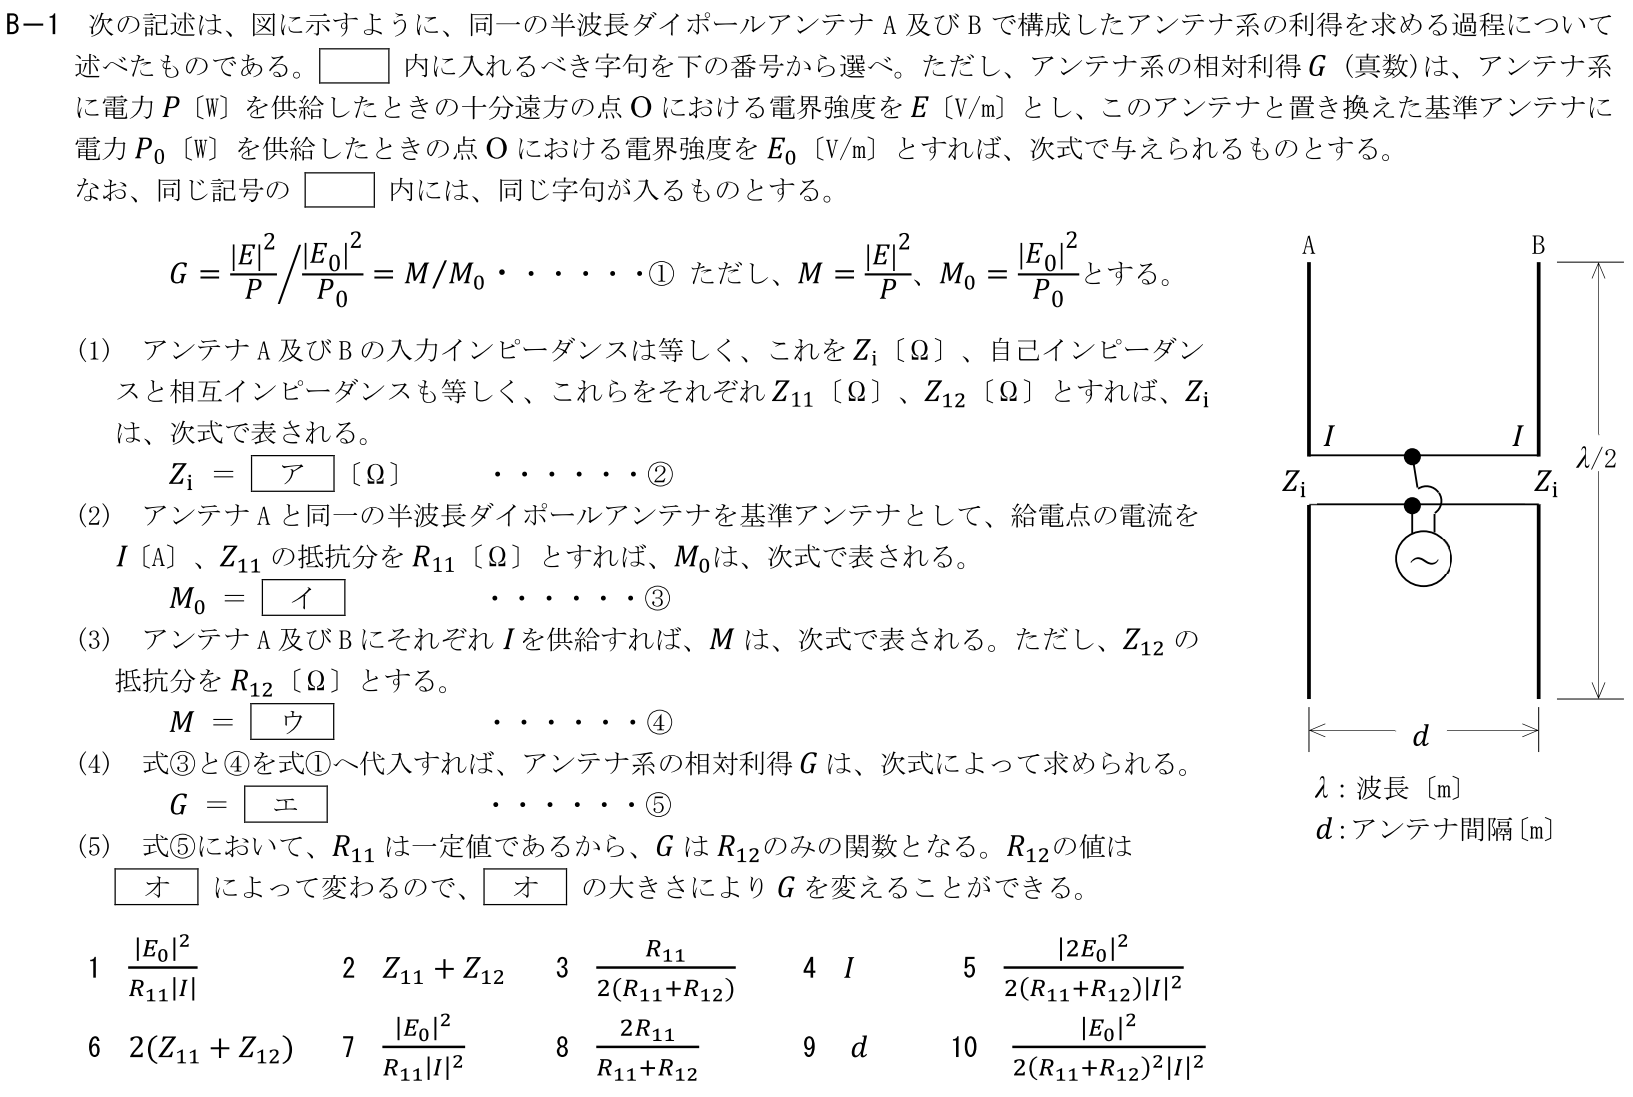 B－1 次の記述は、図に示すように、同一の半波長ダイポールアンテナ A 及び B で構成したアンテナ系の利得を求める過程について
述べたものである。 内に入れるべき字句を下の番号から選べ。ただし、アンテナ系の相対利得 G (真数)は、アンテナ系
に電力 P〔W〕を供給したときの十分遠方の点 O における電界強度を E〔V/m〕とし、このアンテナと置き換えた基準アンテナに
電力 P₀〔W〕を供給したときの点 O における電界強度を E₀〔V/m〕とすれば、次式で与えられるものとする。
なお、同じ記号の 内には、同じ字句が入るものとする。
G = |E|²/P / |E₀|²/P₀ = M/M₀ ・・・・・・① ただし、M = |E|²/P、M₀ = |E₀|²/P₀ とする。
(1) アンテナ A 及び B の入力インピーダンスは等しく、これを Zᵢ〔Ω〕、自己インピーダン
スと相互インピーダンスも等しく、これらをそれぞれ Z₁₁〔Ω〕、Z₁₂〔Ω〕とすれば、Zᵢ
は、次式で表される。
Zᵢ = ア〔Ω〕 ・・・・・・②
(2) アンテナ A と同一の半波長ダイポールアンテナを基準アンテナとして、給電点の電流を
I〔A〕、Z₁₁ の抵抗分を R₁₁〔Ω〕とすれば、M₀は、次式で表される。
M₀ = イ ・・・・・・③
(3) アンテナ A 及び B にそれぞれ I を供給すれば、M は、次式で表される。ただし、Z₁₂ の
抵抗分を R₁₂〔Ω〕とする。
M = ウ ・・・・・・④
(4) 式③と④を式①へ代入すれば、アンテナ系の相対利得 G は、次式によって求められる。
G = エ ・・・・・・⑤
(5) 式⑤において、R₁₁ は一定値であるから、G は R₁₂のみの関数となる。R₁₂の値は
オ によって変わるので、 オ の大きさにより G を変えることができる。
A B
I I
λ/2
Zᵢ Zᵢ
～
d
λ：波長〔m〕
d：アンテナ間隔〔m〕
1 |E₀|²/R₁₁|I| 2 Z₁₁ + Z₁₂ 3 R₁₁/2(R₁₁+R₁₂) 4 I 5 |2E₀|²/2(R₁₁+R₁₂)|I|²
6 2(Z₁₁ + Z₁₂) 7 |E₀|²/R₁₁|I|² 8 2R₁₁/R₁₁+R₁₂ 9 d 10 |E₀|²/2(R₁₁+R₁₂)²|I|²